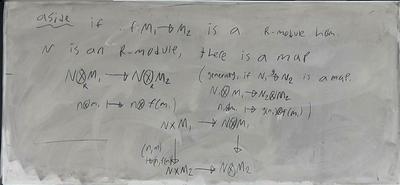 aside if f: M₁ → M₂ is a R-module hom.
N is an R-module, there is a map
N⊗_R M₁ → N⊗_R M₂ (generally, if N₁ →^g N₂ is a map
N₁⊗M₁ → N₂⊗M₂
n⊗m₁ ↦ n⊗f(m₁)
N×M₁ → N⊗M₁
N×M₂ → N⊗M₂